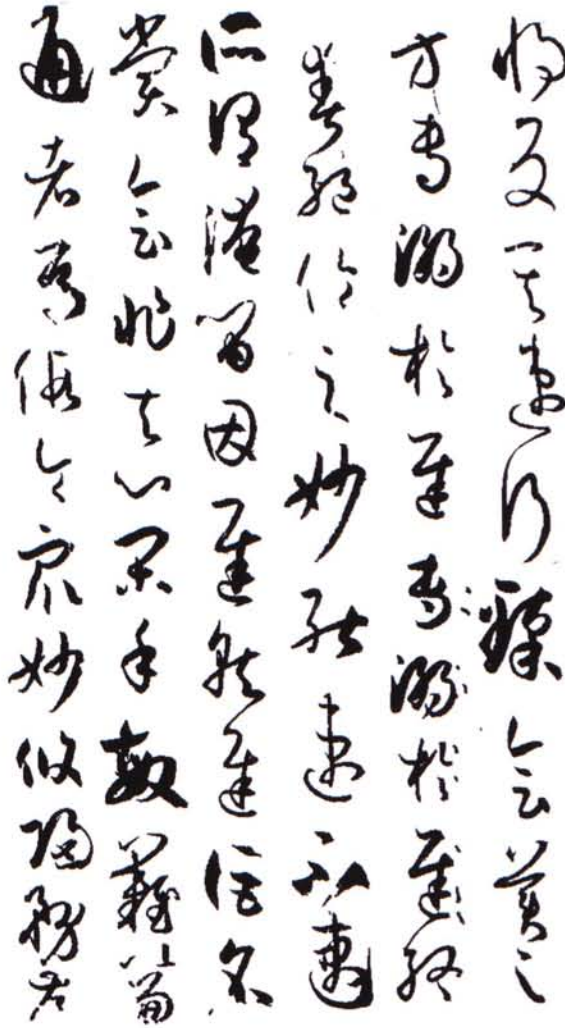 將反其速行臻會美之
方專溺於遲專溺於遲終
爽絶倫之妙能速不速
所謂淹留因遲就遲詎名
賞會非夫心閑手敏難以兼
通者焉假令衆妙攸歸務存